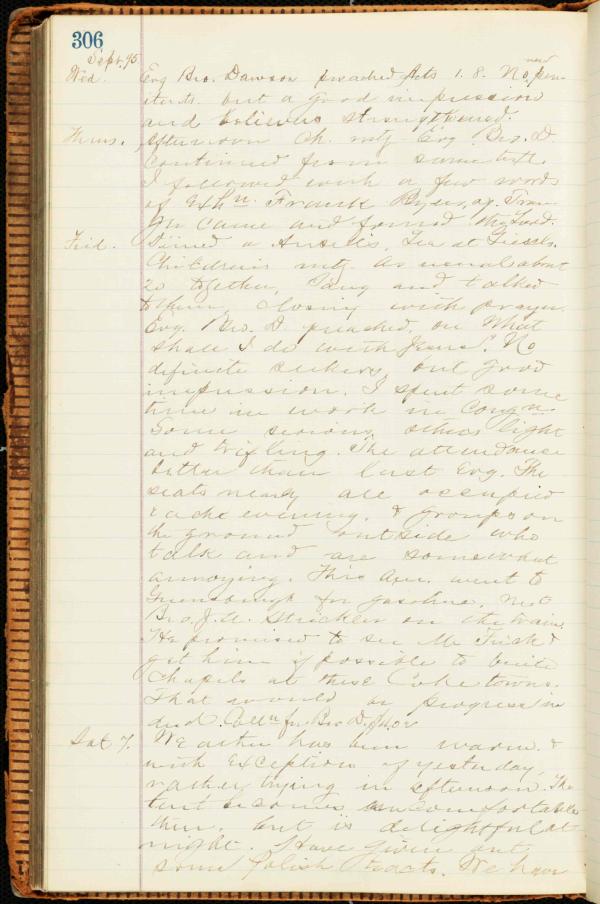 306
Sept. 95
Wed. Evg Bro. Dawson preached Acts 1.8. No new pen-
itents. but a good impression
and believers strengthened.
Thurs. Afternoon Ch. mtg Evg Bro. D.
Continued from same text.
I followed with a few words
of Exhn. Frank
came and found the Lord.
Frid. Dined a Tea at
Children's mtg. as usual about
20 together, Sang and talked
to them, closing with prayer
Evg. Bro. D. preached, on What
shall I do with Jesus". No
definite seekers, but good
impression. I spent some
time in work in Congn.
Some serious, others light
and trifling. The attendance
better than last Evg. The
seats nearly all occupied
each evening, & groups on
the ground outside who
talk and are somewhat
annoying. This a.m. went to
Greensburgh for gasoline. Met
Bro. J. M. Strickler on the train,
He promised to see Mr Frick &
get him if possible to build
Chapels at these Coke towns.
That would be progress in-
deed. Colln for Bro D.
Sat 7. Weather has been warm &
with exception of yesterday,
rather trying in afternoon. The
tent becomes uncomfortable
then, but is delightful at
night. Have given out
some Polish tracts. We have